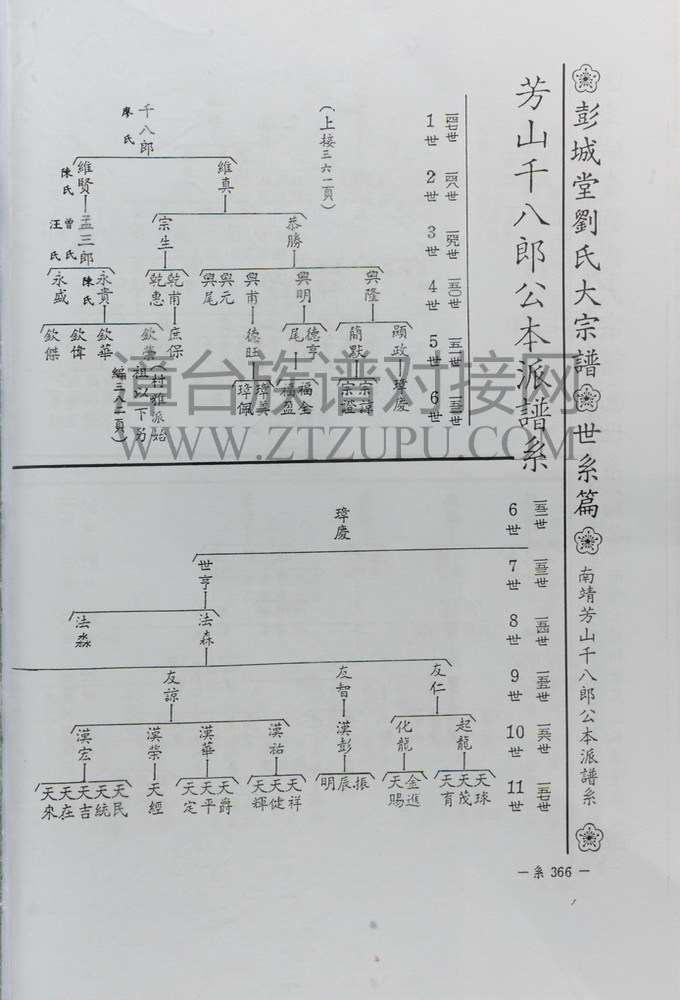 彭城堂劉氏大宗譜 世系篇 南靖芳山千八郎公本派譜系
芳山千八郎公本派譜系
一四七世 一四八世 一四九世 一五〇世 一五一世 一五二世
1世 2世 3世 4世 5世 6世
(上接三六一頁)
千八郎
廖氏
維真
維賢
陳氏
恭勝
宗生
孟三郎
曾氏
汪氏
興隆
興明
興甫
興元
興尾
乾甫
乾惠
永貴
陳氏
永盛
顯政
簡默
德亨
尾
德旺
庶保
欽華
欽偉
欽傑
璋慶
宗諒
宗證
福全
福盈
璋美
璋佩
(村雅派始
祖以下另
編三八二頁)
漳台族谱对接网
WWW.ZTZUPU.COM
一五二世 一五三世 一五四世 一五五世 一五六世 一五七世
6世 7世 8世 9世 10世 11世
璋慶
世亨
法森
法淼
友仁
友智
友諒
起龍
化龍
漢彭
漢祐
漢華
漢榮
漢宏
天球
天茂
天育
金進
天賜
振
辰
明
天祥
天健
天輝
天爵
天平
天定
天經
天民
天統
天吉
天在
天來
— 系 366 —